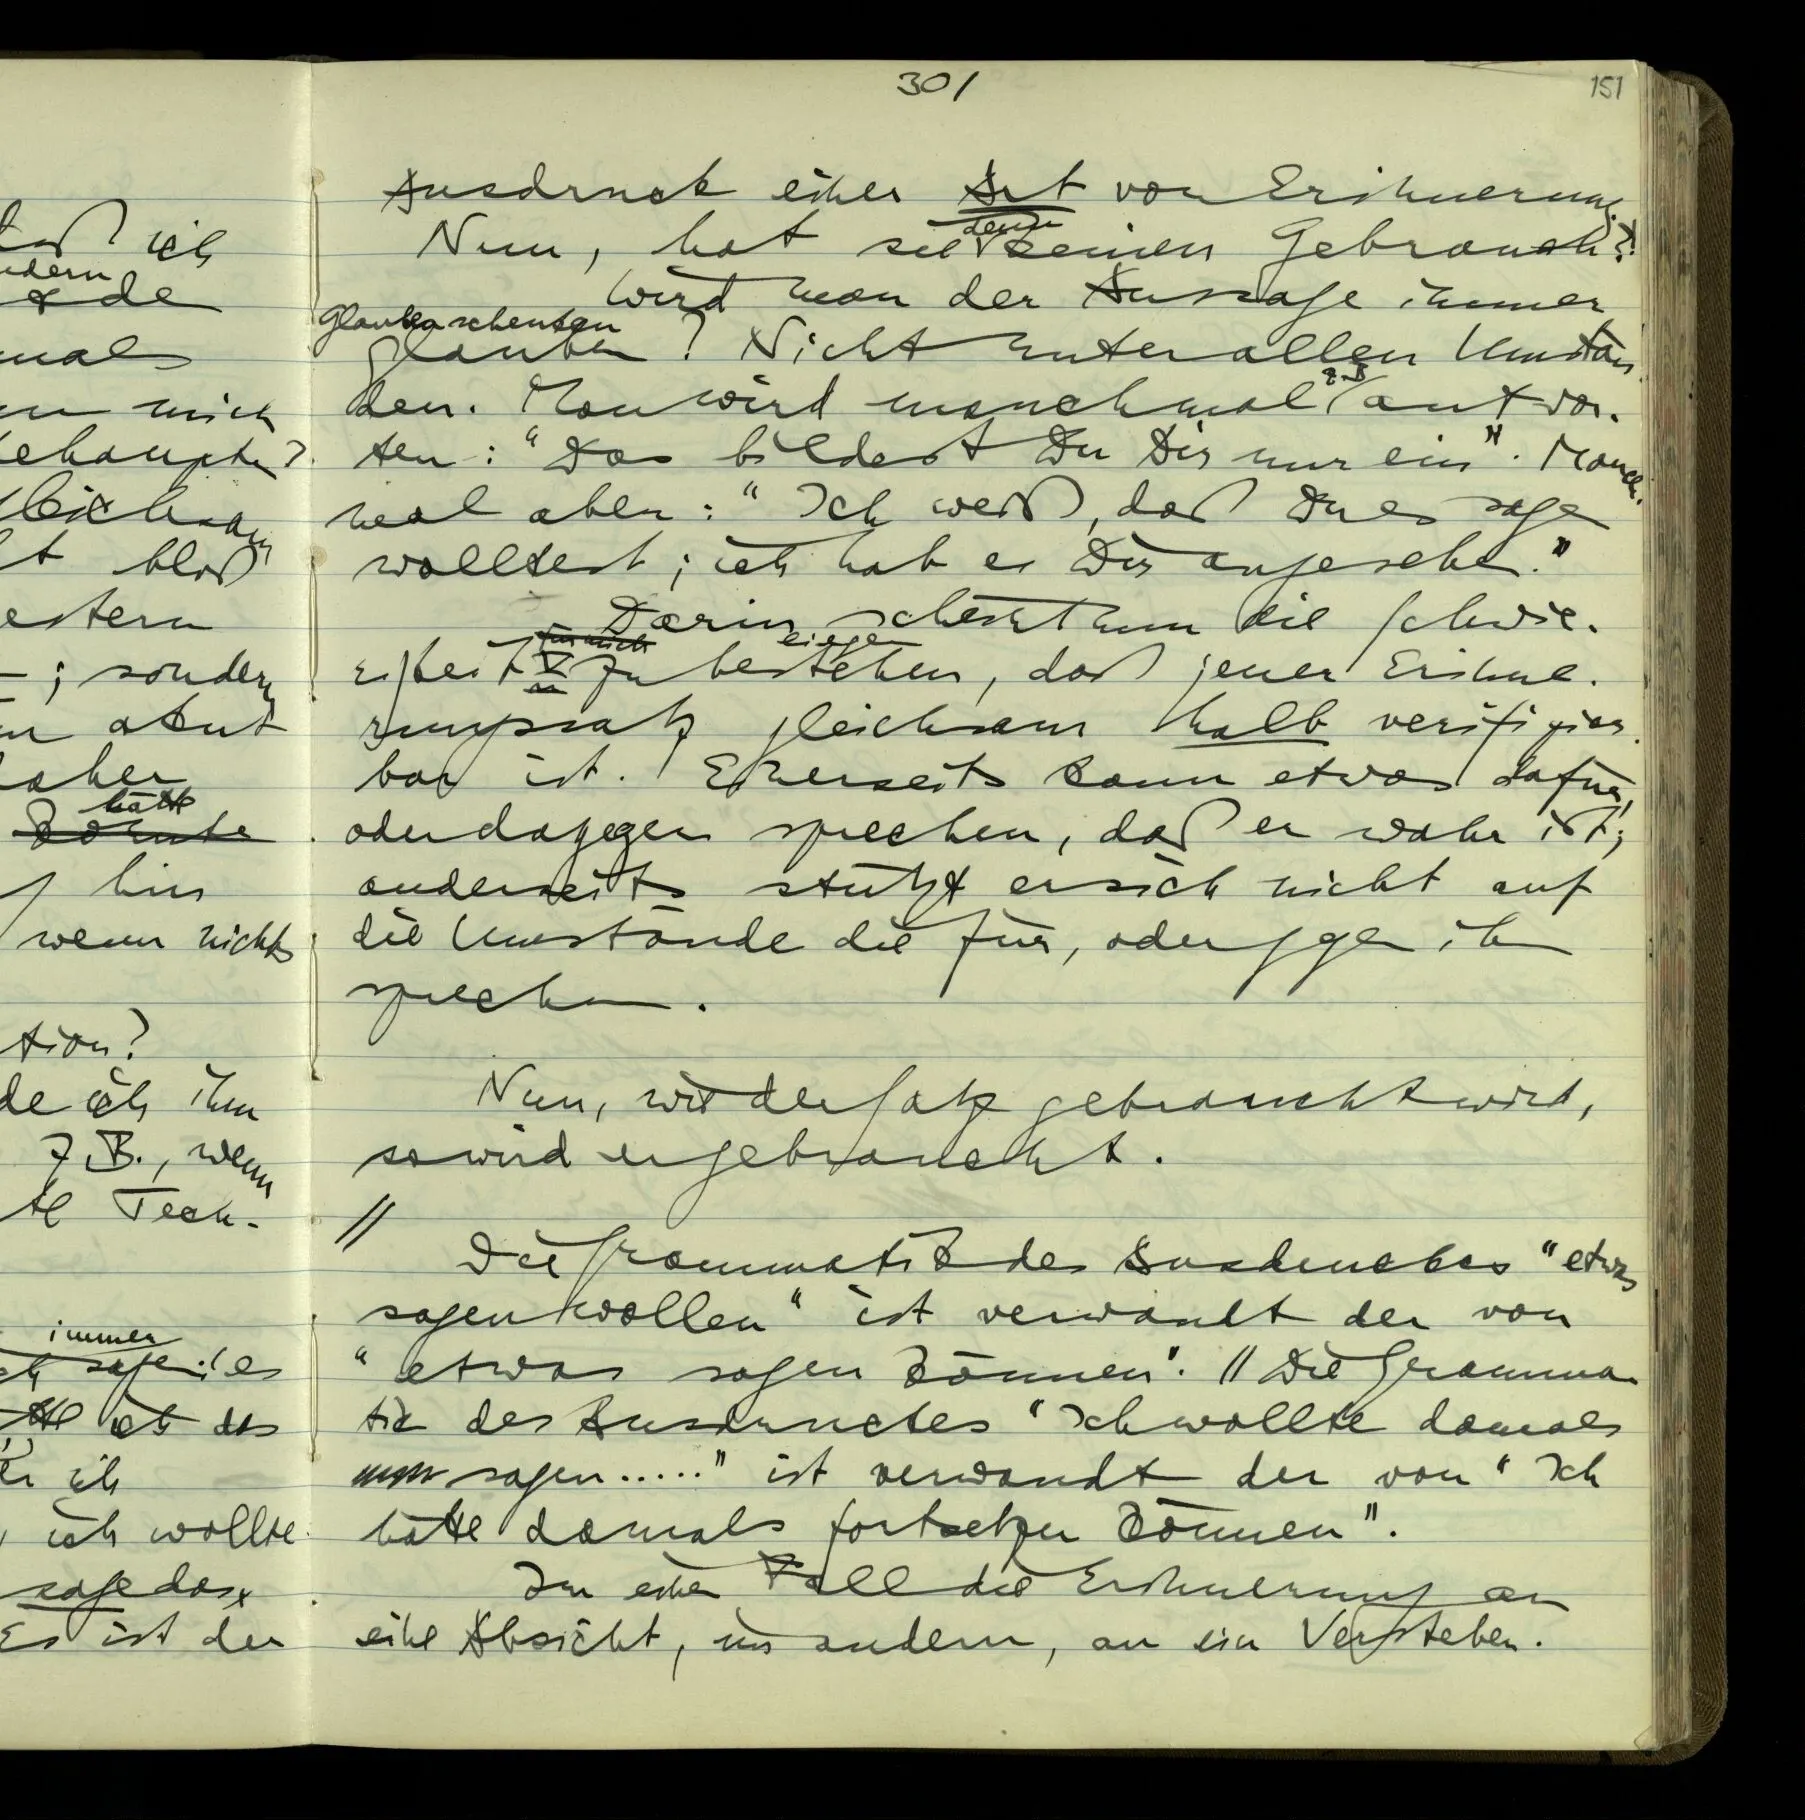 301
151
Ausdruck einer Art von Erinnerung.
Nun, hat sie denn keinen Gebrauch?
Wird man der Aussage immer
Glauben schenken
glauben? Nicht unter allen Umstän-
den. Man wird manchmal z.B. antwor-
ten: "Das bildest Du Dir nur ein". Manch-
mal aber: "Ich weiß, daß Du es sagen
wolltest; ich hab es Dir angesehen."
Darin scheint nun die Schwie-
für mich liegen
rigkeit zu bestehen, daß jener Erinne-
rungssatz gleichsam halb verifizier-
bar ist. Einerseits kann etwas dafür,
oder dagegen sprechen, daß er wahr ist;
anderseits stützt er sich nicht auf
die Umstände die für, oder gegen ihn
sprechen.
Nun, wie der Satz gebraucht wird,
so wird er gebraucht.
//
Die Grammatik des Ausdruckes "etwas
sagen wollen" ist verwandt der von
"etwas sagen können". // Die Gramma-
tik des Ausdruckes "Ich wollte damals
sagen....." ist verwandt der von "Ich
hätte damals fortsetzen können".
Im einen Fall die Erinnerung an
eine Absicht, im andern, an ein Verstehen.
daß ich
ndern
mals
mich
behaupten?
gleichsam
t bloß
estern
; sondern
aber
hätte
könnte
hin
wenn nichts
tion?
de ich ihm
z.B., wenn
te Tech-
immer
ich sage: es
ich das
ich
, ich wollte
sage das
Es ist der